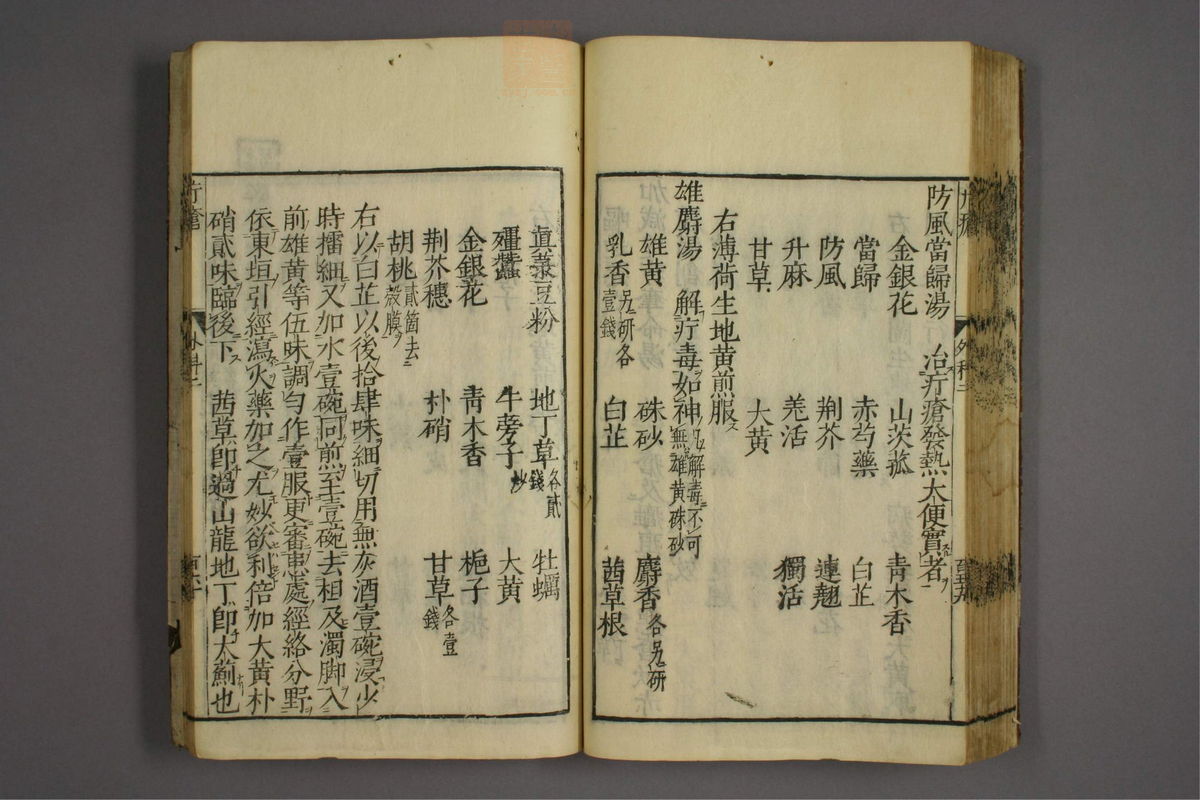 防風當歸湯　治疔瘡發熱大便實者
金銀花　山茨菰　青木香
當歸　赤芍藥　白芷
防風　荆芥　連翹
升麻　羌活　獨活
甘草　大黄
右薄荷生地黄煎服
雄麝湯　解疔毒如神凡解毒不可無雄黄硃砂
雄黄　硃砂　麝香各另研
乳香另研各壹錢　白芷　茜草根
眞菉豆粉　地丁草各貳錢　牡蠣
殭蠶　牛蒡子炒　大黄
金銀花　青木香　梔子
荆芥穗　朴硝　甘草各壹錢
胡桃貳箇去殻膜
右以白芷以後拾肆味細切用無灰酒壹碗浸少
時擂細又加水壹碗同煎至壹碗去柤及濁脚入
前雄黄等伍味調勻作壹服更審患處經絡分野
依東垣引經瀉火藥加之尤妙欲利倍加大黄朴
硝貳味臨後下　茜草即過山龍地丁即大薊也
外科二